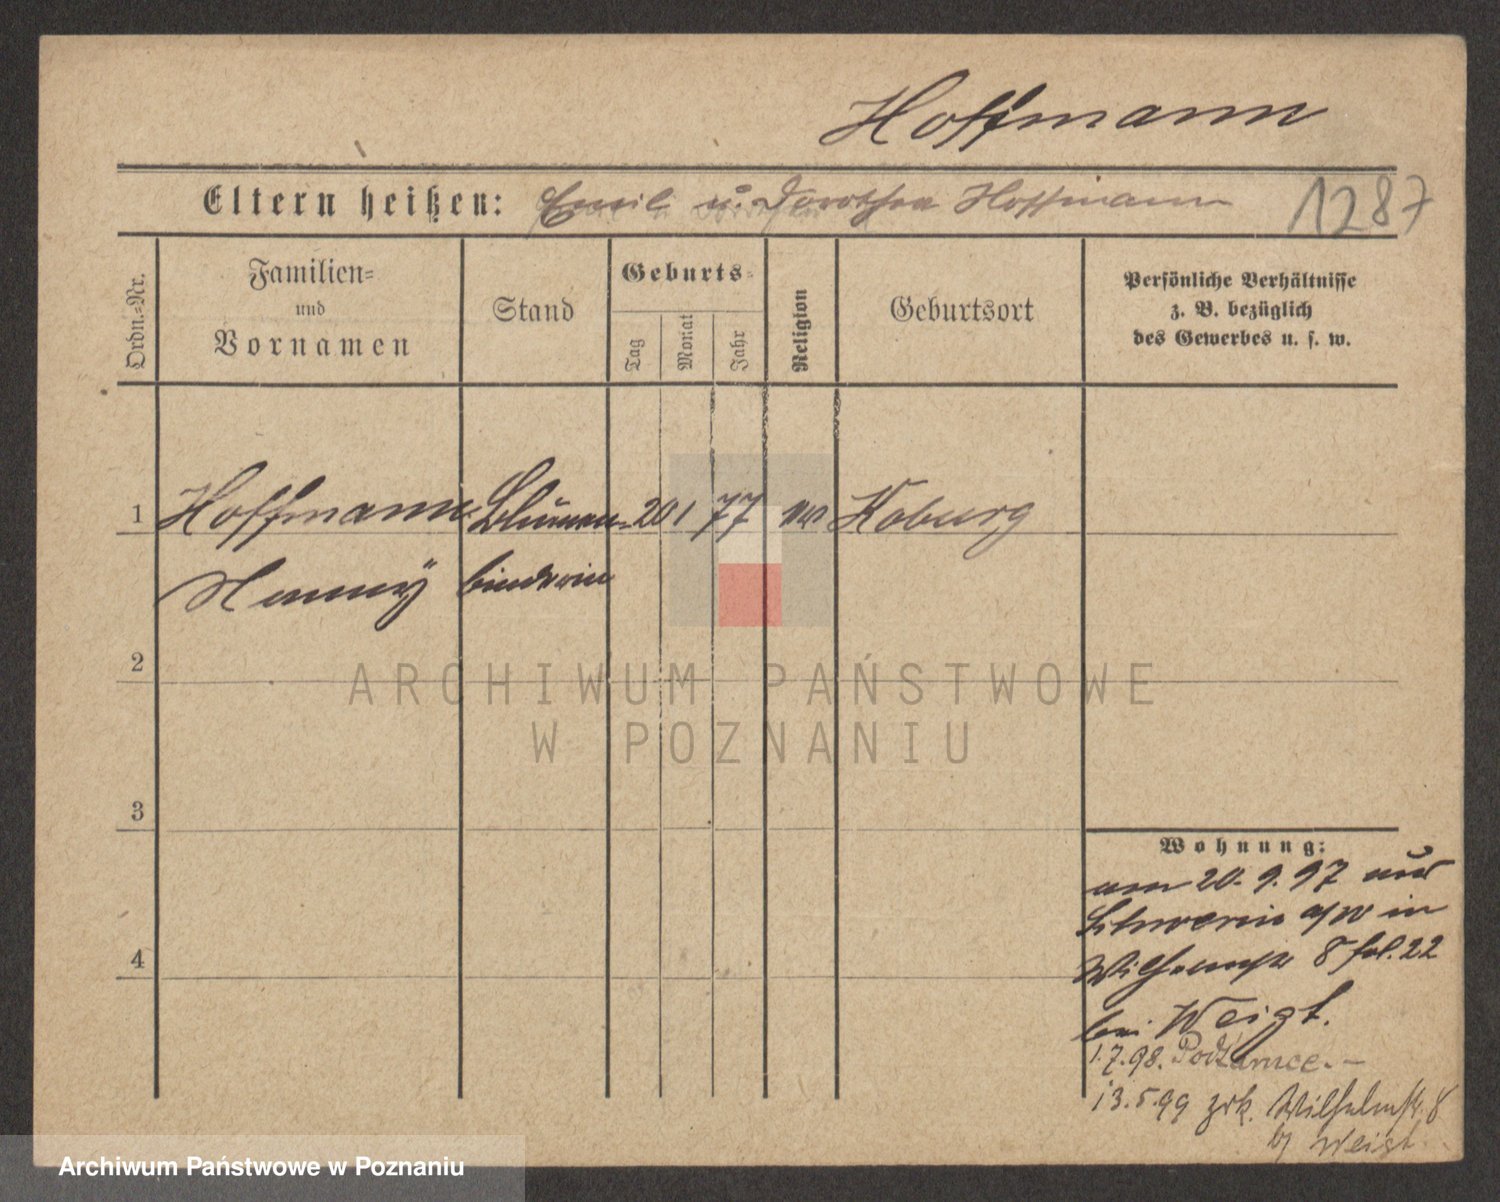 Hoffmann
Eltern heißen: Emil u. Dorothea Hoffmann 1287
Ordn.-Nr.
Familien-
und
Vornamen
Stand
Geburts-
Tag
Monat
Jahr
Religion
Geburtsort
Persönliche Verhältnisse
z. B. bezüglich
des Gewerbes u. s. w.
1 Hoffmann Blumen- 20 1 77 Koburg
binderin
2
3
4
ARCHIWUM PAŃSTWOWE
W POZNANIU
Wohnung:
am 20. 9. 97 aus
Schwerin a/W in
Wilhelmstr 8 fol. 22
bei Weigt.
1.7.98. Podzamce. –
13.5.99 zrk. Wilhelmstr. 8
bj Weigt.
Archiwum Państwowe w Poznaniu